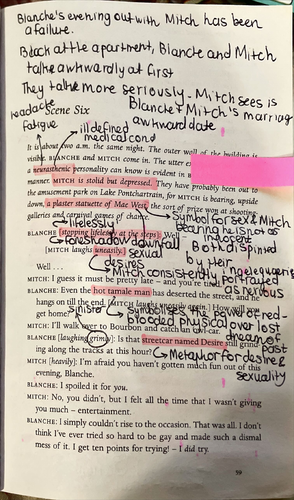 Blanche's evening out with Mitch has been
a failure.
Back at the apartment, Blanche and Mitch
talk awkwardly at first
They talk more seriously - Mitch sees is
Blanche & Mitch's
headache
fatigue
Scene Six
awkward date
ill defined
medical cond
It is about two a.m. the same night. The outer wall of the building is
visible. BLANCHE and MITCH come in. The utter
a neurasthenic personality can know is evident in
manner. MITCH is stolid but depressed. They have probably been out to
the amusement park on Lake Pontchartrain, for MITCH is bearing, upside
down, a plaster statuette of Mae West, the sort of prize won at shooting
galleries and carnival games of chance.
Symbol for sex & Mitch
bearing he is not as
innocent
lifelessly
BLANCHE [stopping lifelessly at the steps]:
foreshadow downfall
Both despised
by their
inelegances
MITCH [laughs uneasily].
sexual
desires
Well . . .
Mitch consistently portrayed
as nervous
MITCH: I guess it must be pretty late – and you're tired.
BLANCHE: Even the hot tamale man has deserted the street, and he
hangs on till the end. [MITCH laughs uneasily again.] How will you
get home?
sinister
Symbolises the power of red-
blooded physical over lost
dream of
past
MITCH: I'll walk over to Bourbon and catch an owl-car.
BLANCHE [laughing grimly]: Is that streetcar named Desire still grind-
ing along the tracks at this hour?
Metaphor for desire &
sexuality
MITCH [heavily]: I'm afraid you haven't gotten much fun out of this
evening, Blanche.
BLANCHE: I spoiled it for you.
MITCH: No, you didn't, but I felt all the time that I wasn't giving
you much – entertainment.
BLANCHE: I simply couldn't rise to the occasion. That was all. I don't
think I've ever tried so hard to be gay and made such a dismal
mess of it. I get ten points for trying! – I did try.